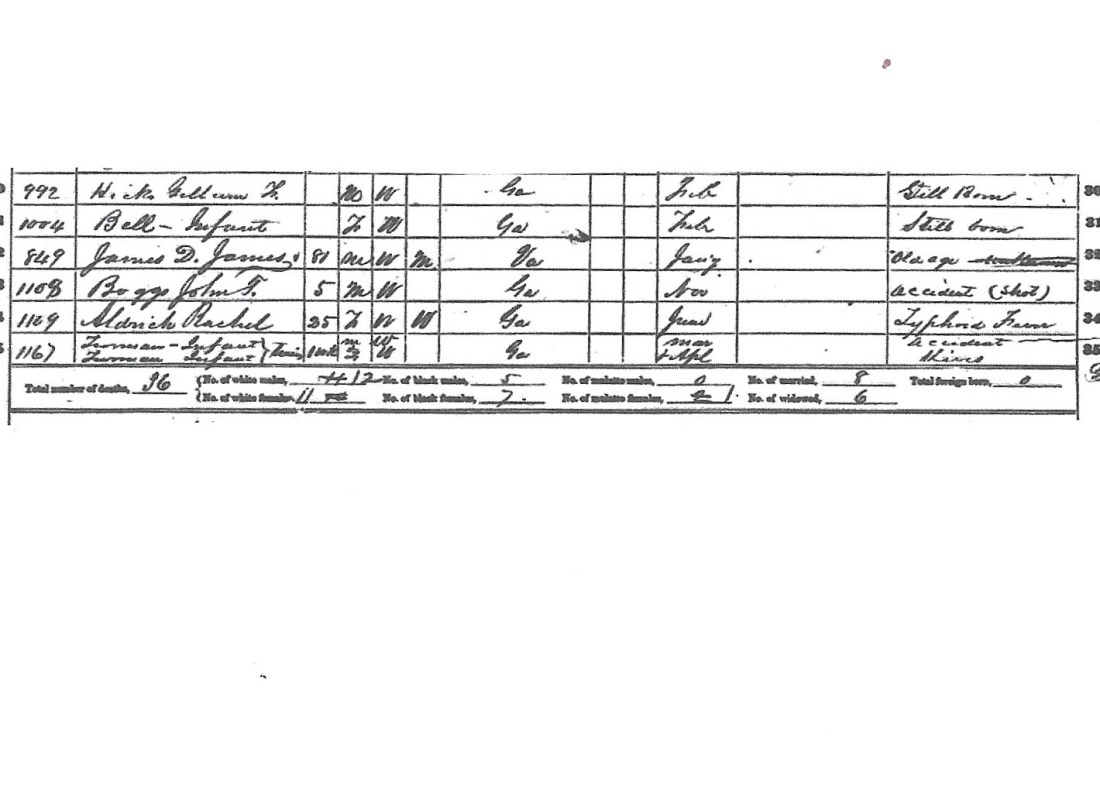 992 Hick Gillium F. M W Ga Feb Still Born 30
1004 Bell - Infant F W Ga Feb Still born 31
849 James D. James 81 M W M Va Jany Old age 32
1108 Boggs John T. 5 M W Ga Nov Accident (Shot) 33
1169 Aldrich Rachel 25 F W W Ga June Typhoid Fever 34
1167 Infant m W Ga Mar Accident 35
Infant Twins F W & Apl Hives
Total number of deaths, 36 No. of white males, 12 No. of black males, 5 No. of mulatto males, 0 No. of married, 8 Total foreign born, 0
No. of white females, 11 No. of black females, 7 No. of mulatto females, 1 No. of widowed, 6